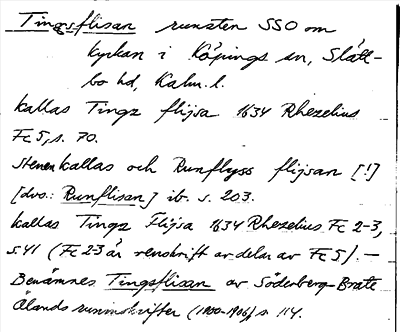 Tingsflisan runsten SSO om
kyrkan i Köpings sn, Slätt-
bo hd, Kalm. l.
kallas Tingz flijsa 1634 Rhezelius
Fc 5, s. 70.
Stenen kallas och Runflyss flijsan [!]
[dvs.: Runflisan] ib. s. 203.
kallas Tingz Flijsa 1634 Rhezelius Fc 2-3,
s. 41 (Fc 2-3 är renskrift av delar av Fc 5). —
Benämnes Tingsflisan av Söderberg-Brate
Ölands runinskrifter (1900-1906), s. 114.